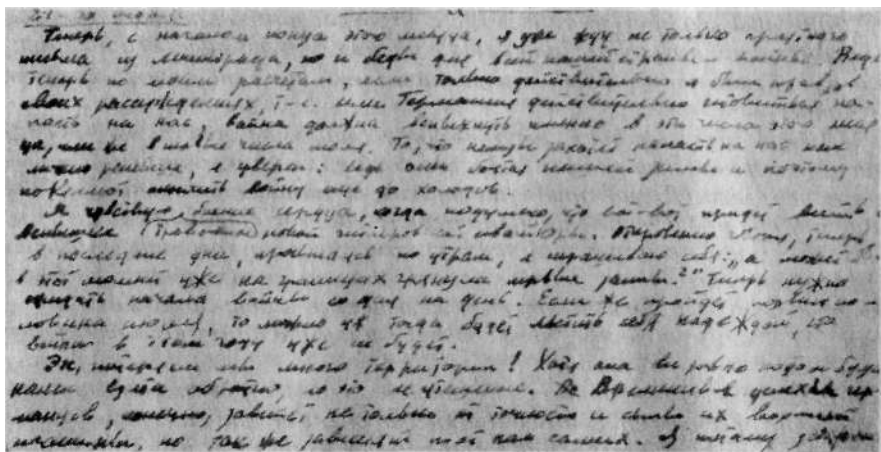 Теперь, с началом конца этого месяца, я уже жду не только приятного
письма из Ленинграда, но и беды для всей нашей страны войны. Ведь
теперь по моим расчетам, если только действительно я был прав в
своих рассуждениях, т-е. если Германия действительно готовиться на-
пасть на нас, война должна вспыхнуть именно в эти числа этого меся
ца, или же в числа июля. То, что немцы захотят напасть на нас как
можно раньше, я уверен: ведь они боятся нашей зимы и поэтому
пожелают войну еще до холодов.
Я чувствую биение сердца, когда подумаю, что вот-вот придет весть о
новой авантюры. Откровенно, теперь
в последние дни, просыпаясь по утрам, я спрашиваю себя: „а может
в этот момент уже на границах грянули первые залпы?" Теперь нужно
ожидать начала войны со дня на день. Если же пройдет первая по-
ловина июля, то можно уж тогда будет льстить себя надеждой, что
войны в этом году уже не будет.
Эх, потеряем мы много территории! Хотя она все равно потом будет
нами взята обратно, но это не утешение. Временные успехи гер-
манцев, конечно, зависят не только от точности и силы их военной
машины, но так же зависят от нас самих. Я потому